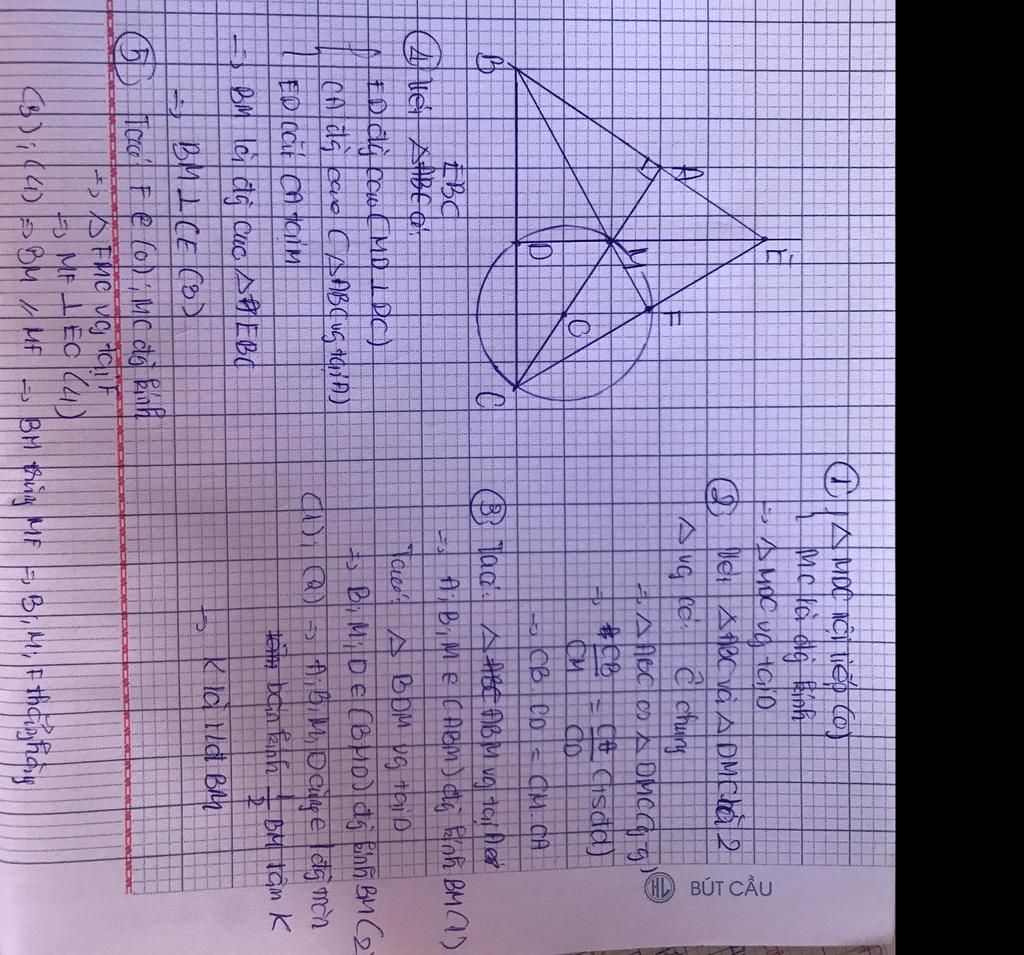 ① { △ MDC nội tiếp (O)
MC là đg kính
⇒ △ MDC vg tại D
② Xét △ ABC và △ DMC là 2
△ vg có: Ĉ chung
⇒ △ ABC ∽ △ DMC (g.g)
⇒ CB/CM = CA/CD (tsđd)
⇒ CB.CD = CM.CA
③ Ta có: △ ABM vg tại A
⇒ A, B, M ∈ (ABM) đg kính BM (1)
Ta có: △ BDM vg tại D
⇒ B, M, D ∈ (BMD) đg kính BM (2)
(1), (2) ⇒ A, B, M, D cùng ∈ 1 đg tròn
bán kính 1/2 BM tâm K
⇒ K là t/đ BM
E
A
F
M
O
B
D
C
EBC
④ Xét △ có:
{ ED đg cao (MD ⊥ DC)
CA đg cao (△ ABC vg tại A)
ED cắt CA tại M
⇒ BM là đg cao △ EBC
⇒ BM ⊥ CE (3)
⑤ Ta có F ∈ (O), MC đg kính
⇒ △ FMC vg tại F
⇒ MF ⊥ EC (4)
(3), (4) ⇒ BM // MF ⇒ BM trùng MF ⇒ B, M, F thẳng hàng
HL BÚT CẦU